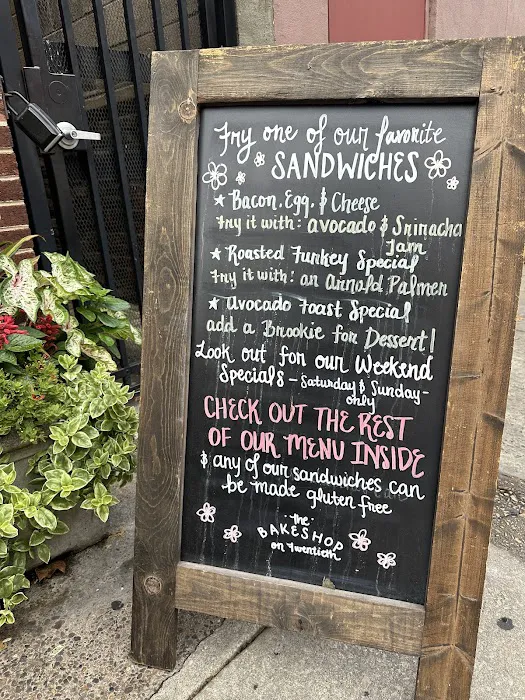 Try one of our favorite
SANDWICHES
★ Bacon, Egg, & Cheese
Try it with: avocado & Sriracha
Jam
★ Roasted Turkey Special
Try it with: an Arnold Palmer
★ Avocado Toast Special
add a Brookie for Dessert!
Look out for our Weekend
Specials - Saturday & Sunday -
only
CHECK OUT THE REST
OF OUR MENU INSIDE
& any of our sandwiches can
be made gluten free
·the·
BAKESHOP
on Twentieth